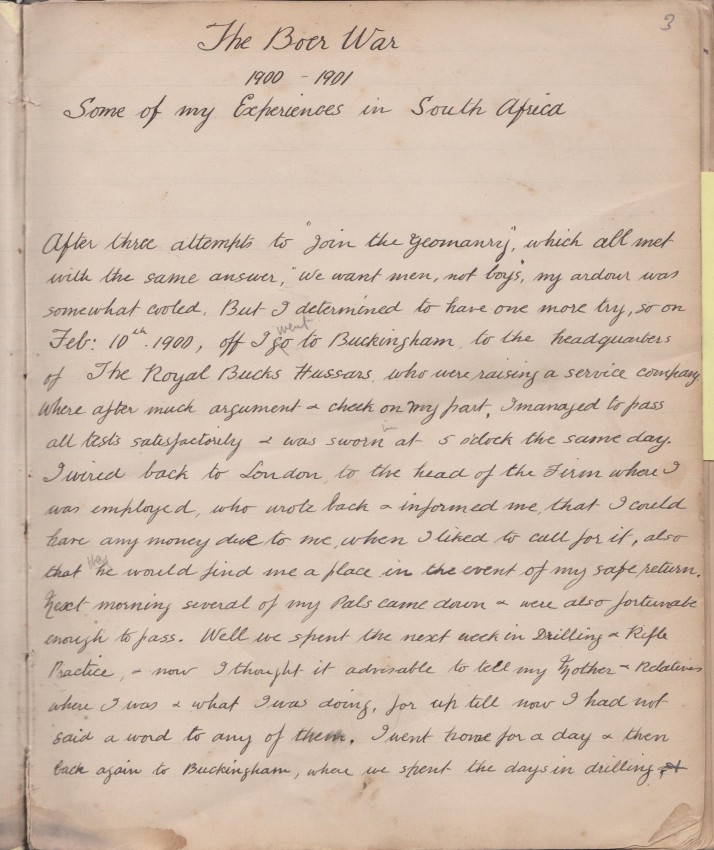 3
The Boer War
1900 - 1901
Some of my Experiences in South Africa
After three attempts to "Join the Yeomanry", which all met
with the same answer, "We want men, not boys", my ardour was
somewhat cooled. But I determined to have one more try, so on
Feb: 10th. 1900, off I go went to Buckingham, to the headquarters
of The Royal Bucks Hussars, who were raising a service company,
where after much argument & cheek on my part, I managed to pass
all tests satisfactorily & was sworn in at 5 o'clock the same day.
I wired back to London, to the head of the Firm where I
was employed, who wrote back & informed me, that I could
have any money due to me, when I liked to call for it, also
that they he would find me a place in the event of my safe return.
Next morning several of my Pals came down & were also fortunate
enough to pass. Well we spent the next week in Drilling & Rifle
Practice, & now I thought it advisable to tell my Mother & Relatives
where I was & what I was doing, for up till now I had not
said a word to any of them. I went home for a day & then
back again to Buckingham, where we spent the days in drilling, &